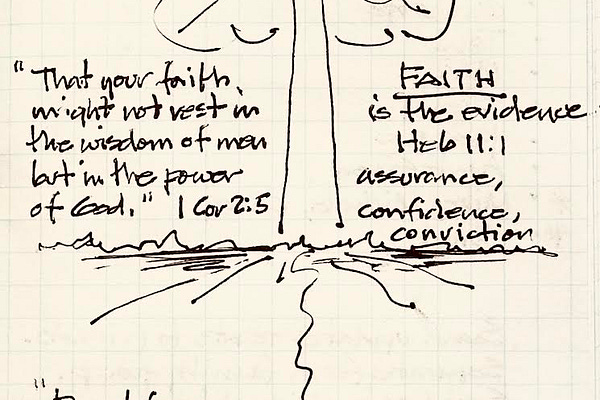 "That your faith
might not rest in
the wisdom of men
but in the power
of God." 1 Cor 2:5
FAITH
is the evidence
Heb 11:1
assurance,
confidence,
conviction